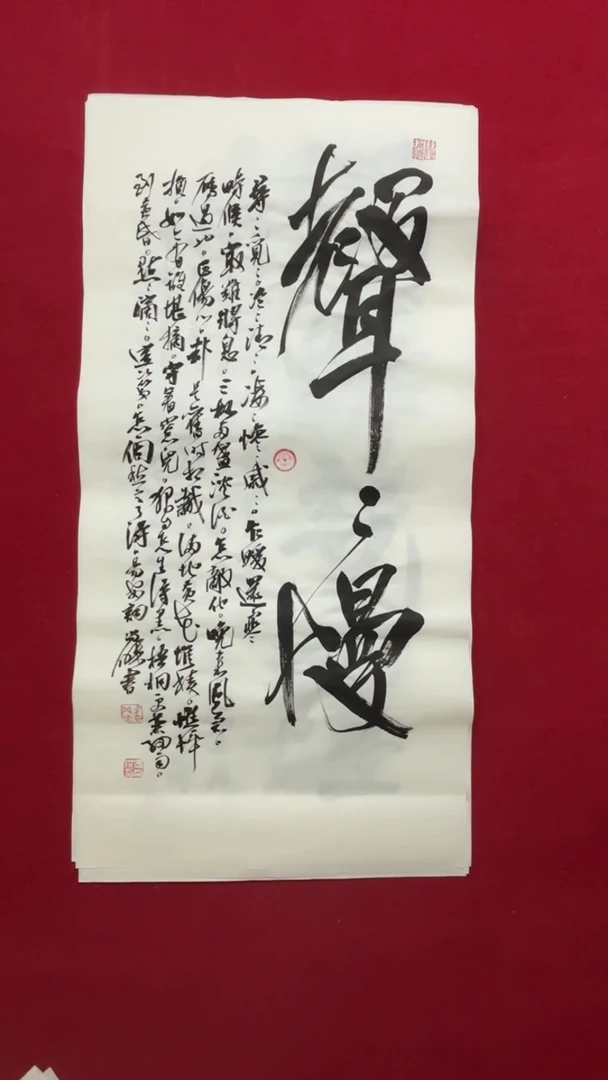 聲〻慢
尋〻覓〻。冷〻清〻。凄〻慘〻戚〻。乍暖還寒
時候。最難將息。三杯兩盞淡酒。怎敵他。晚來風急。
雁過也。正傷心。卻是舊時相識。滿地黃花堆積。憔悴
損。如今有誰堪摘。守著窗兒。獨自怎生得黑。梧桐更兼細雨。
到黃昏。點〻滴〻。這次第。怎個愁字了得。易安詞 書